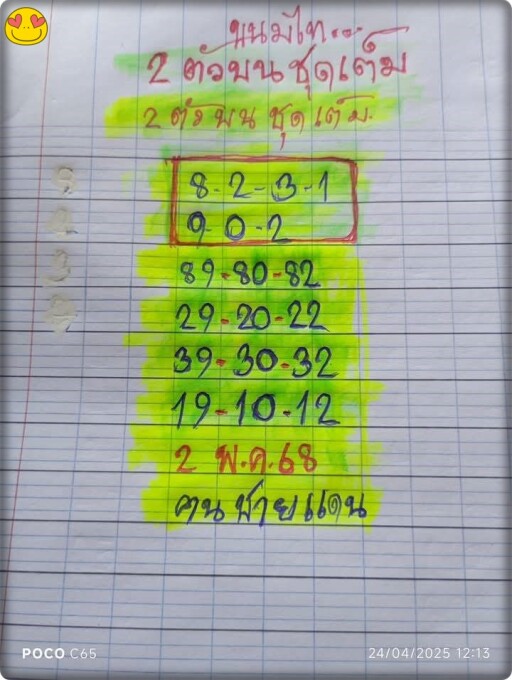 ขนมไท...
2 ตัวบน ชุดเต็ม
2 ตัวบน ชุดเต็ม.
8-2-3-1
9-0-2
89-80-82
29-20-22
39-30-32
19-10-12
2 พ.ค.68
คนชายแดน
POCO C65
24/04/2025 12:13